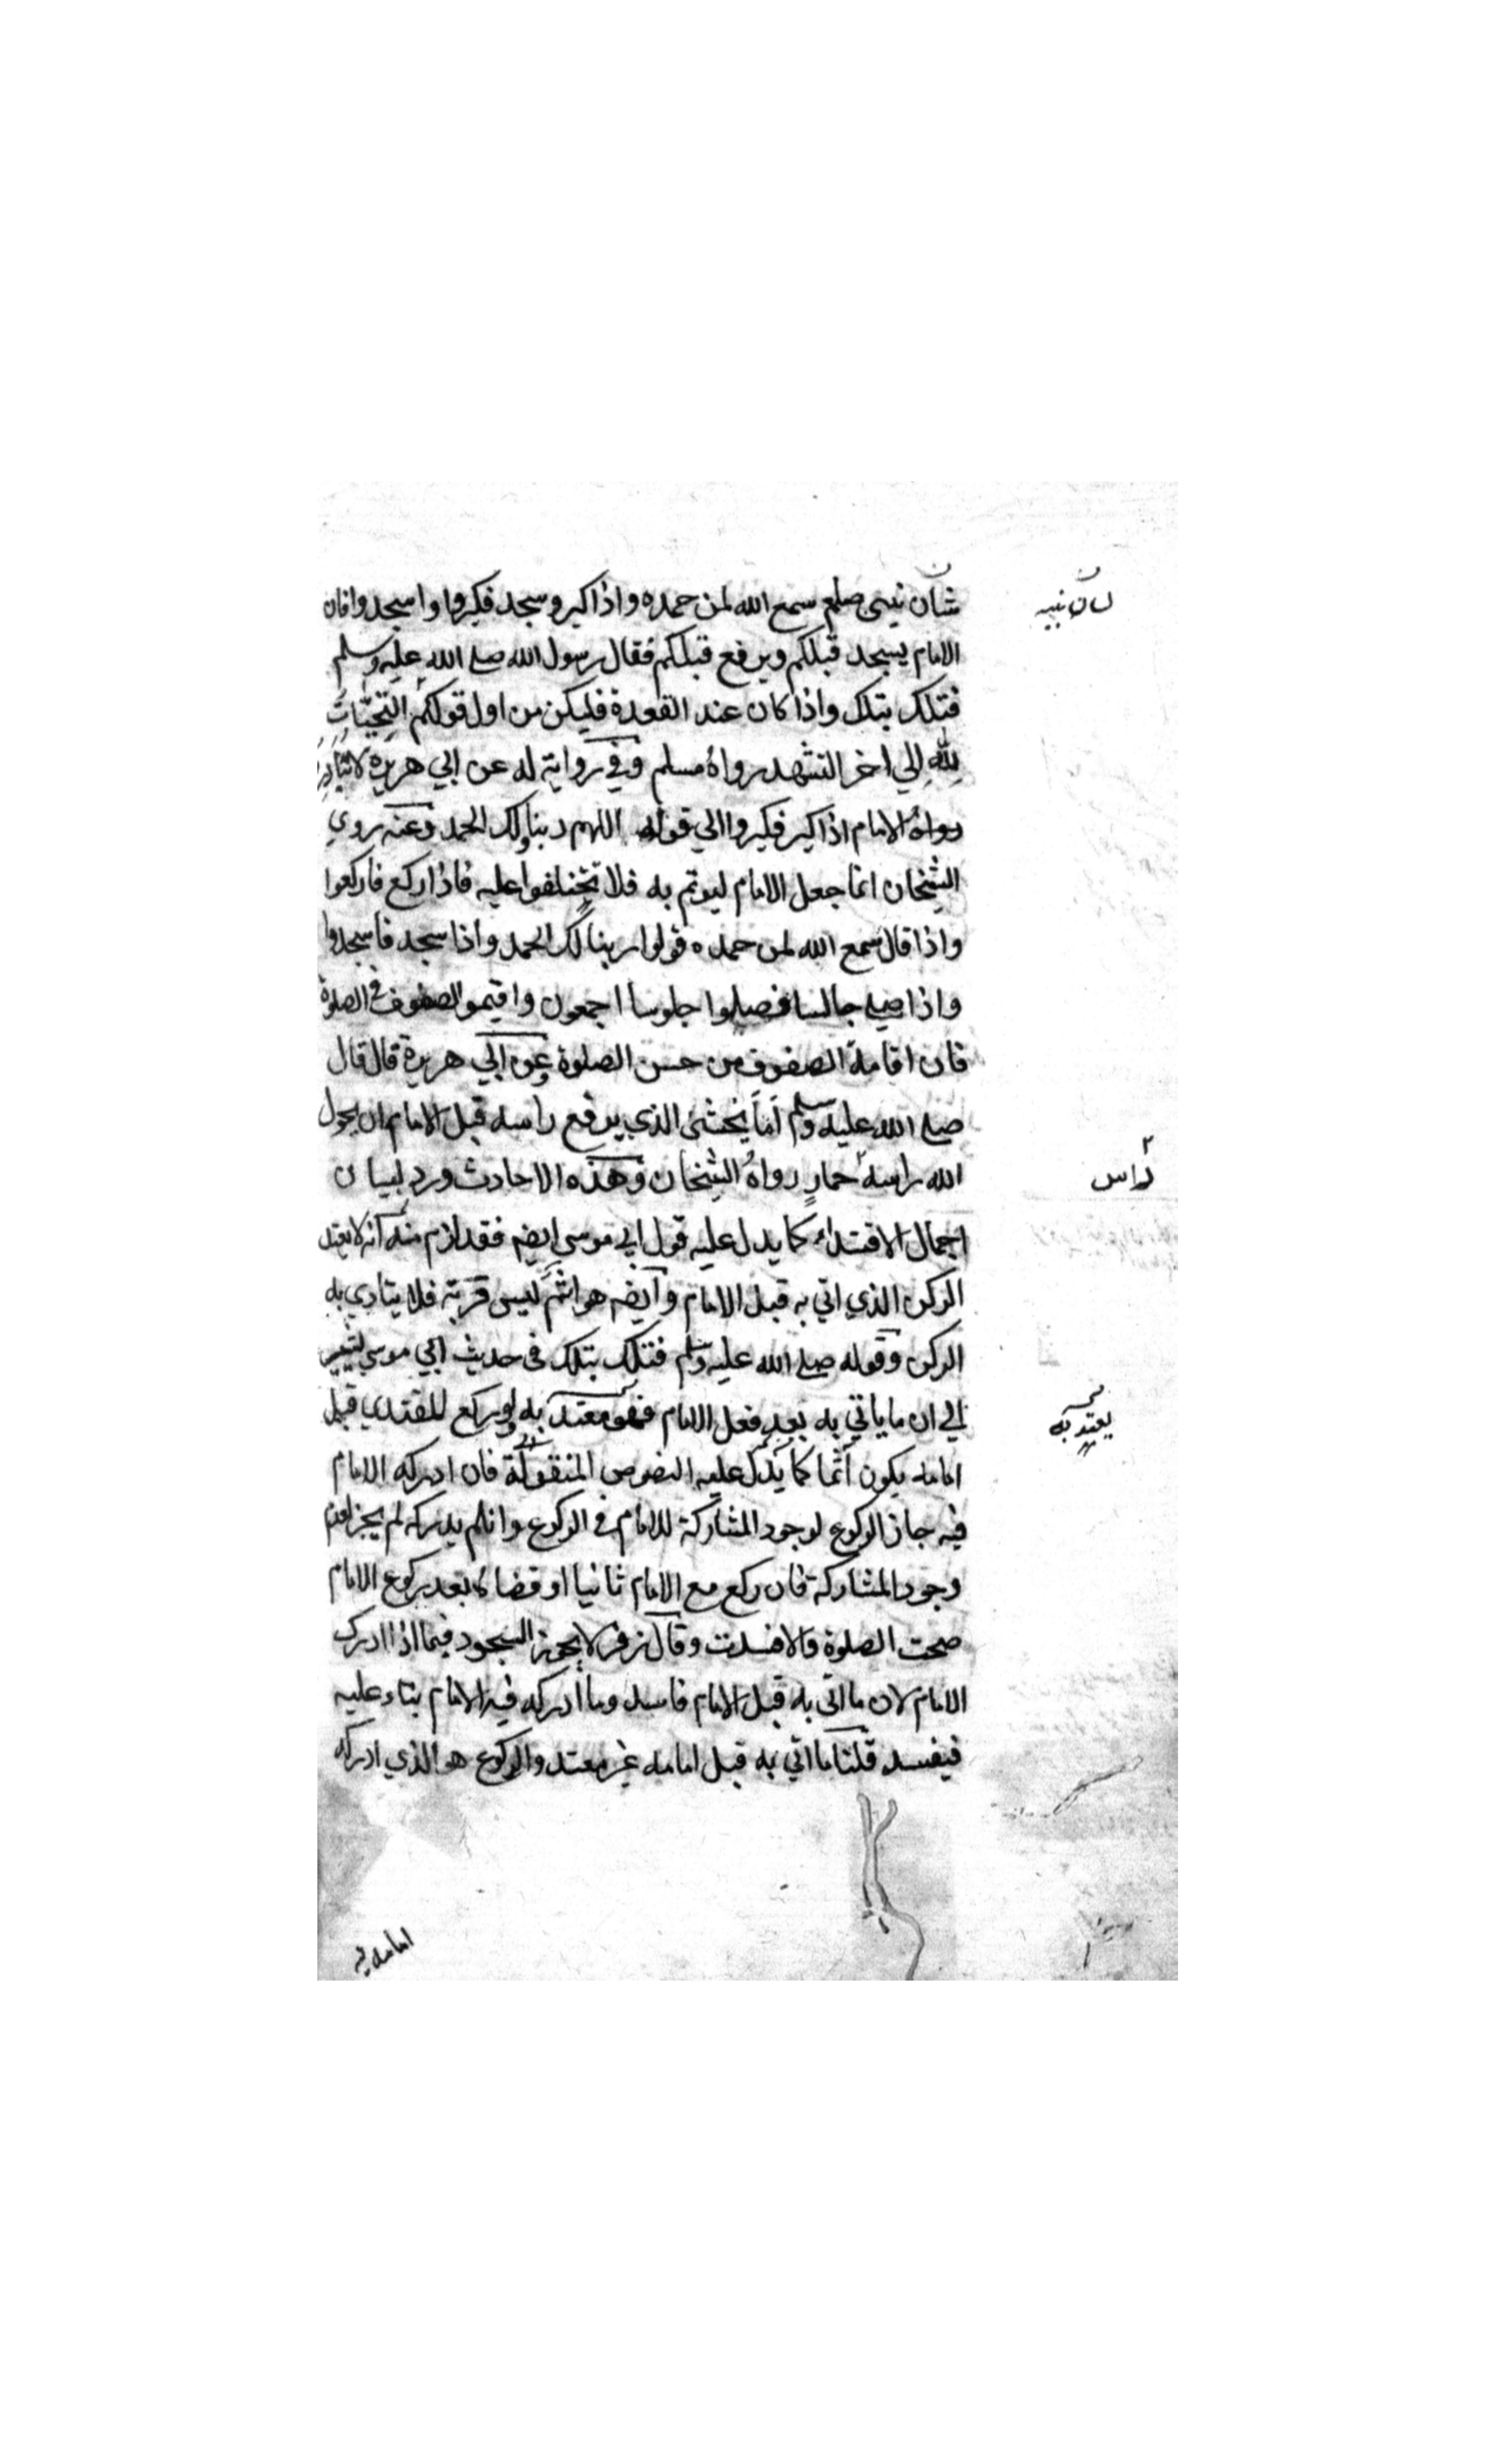 شان نبيى صلعم سمع الله لمن حمده واذا كبر وسجد فكبروا واسجدوا فان
لسان نبيه
الامام يسجد قبلكم ويرفع قبلكم فقال رسول الله صلى الله عليه وسلم
فتلك بتلك واذا كان عند القعدة فليكن من اول قولكم التَحِيَّاتُ
لِلّٰهِ الي اخر التشهد رواهُ مسلم وفي رواية له عن ابي هريرة لا تبادروا
الامام اذا كبر فكبروا الي قوله اللهم ربنا ولك الحمد وعنه روي
الشيخان انما جعل الامام ليوتم به فلا تختلفوا عليه فاذا ركع فاركعوا
واذا قال سمع الله لمن حمده قولوا ربنا لك الحمد واذا سجد فاسجدوا
واذا صلى جالسا فصلوا جلوسا اجمعون واقيموا الصفوف في الصلوة
فان اقامة الصفوف من حسن الصلوة وعن ابي هريرة قال قال
صلى الله عليه وسلم اَمَا يخشى الذي يرفع راسه قبل الامام ان يحول
الله راسهُ حمارٍ رواهُ الشيخان وهذه الاحادث ورد لبيان
كراس
اجمال الاقتداء كما يدل عليه قول ابي موسي ايضه فقد لزم منه انه لا يعتد
الركن الذي اتي به قبل الامام وايضه هو اثم ليس قربة فلا يتادي به
الركن وقوله صلى الله عليه وسلم فتلك بتلك في حديث ابي موسي يشير
الي ان ما ياتي به بعد فعل الامام فهو معتد به ولو ركع المقتدي قبل
يعتد به
امامه يكون آثما كما يدل عليه النصوص المنقولة فان ادركه الامام
فيه جاز الركوع لوجود المشاركة للامام في الركوع وان لم يدركه لم يجز لعدم
وجود المشاركة فان ركع مع الامام ثانيا او قضا كا بعد ركوع الامام
صحت الصلوة والا فسدت وقال زفر لا يجوز السجود فيما اذا ادرك
الامام لان ما اتى به قبل الامام فاسد وما ادركه فيه الامام بناء عليه
فيفسد قلنا ما اتي به قبل امامه غير معتد والركوع هو الذي ادركه
امامه فيه